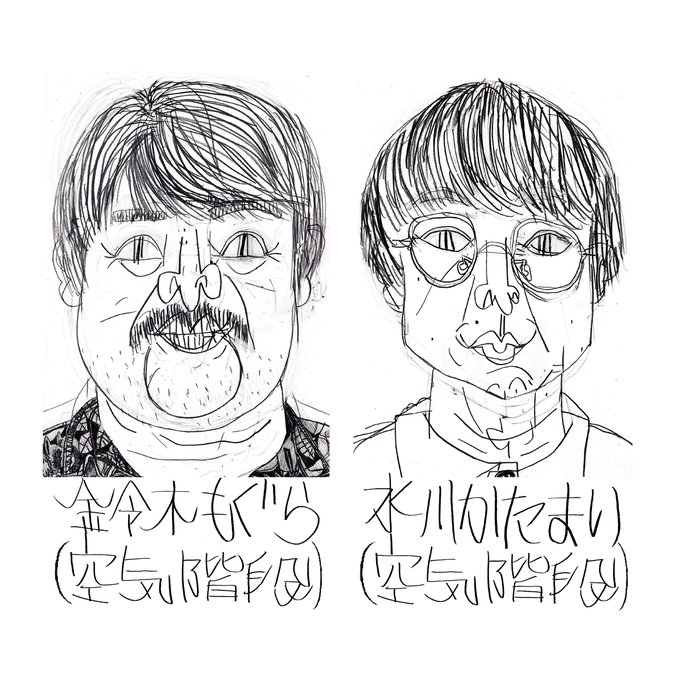 鈴木もぐら
(空気階段)
水川かたまり
(空気階段)